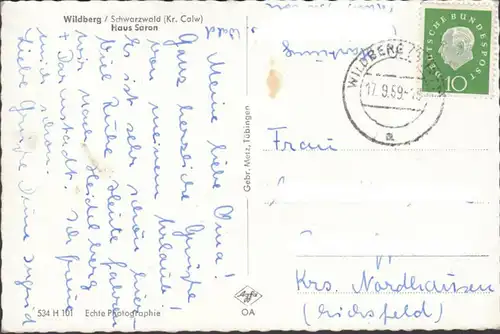 Wildberg / Schwarzwald (Kr. Calw)
Haus Saron
Meine liebe Oma!
Ganz herzliche Grüße
von meinem Urlaub!
Es ist sehr schön hier.
Viel Ruhe. Heute fahren
wir nach Heidelberg
+ Darmstadt. Ich freue
mich schon.
Liebe Grüße Deine Ingrid
534 H 101 Echte Photographie
Gebr. Metz, Tübingen
Agfa
OA
WILDBERG
17.9.59
a
DEUTSCHE BUNDESPOST
10
Frau
Krs. Nordhausen
(Eichsfeld)